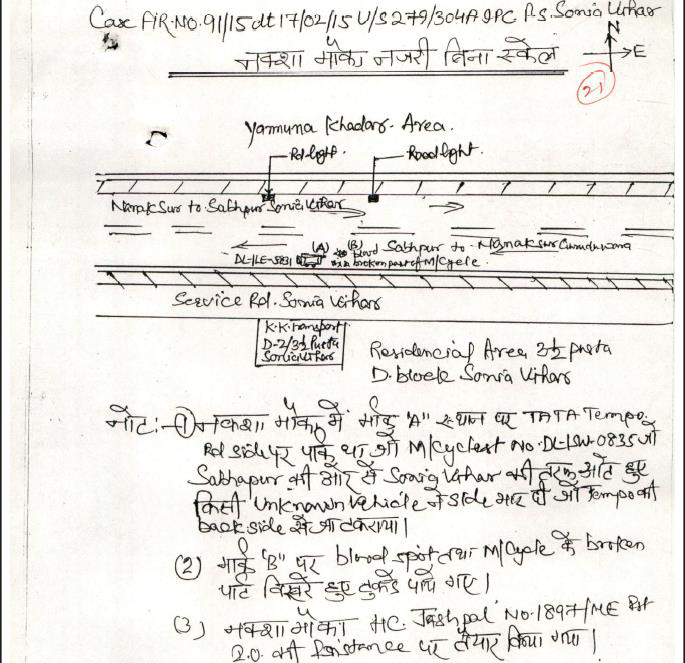 Case FIR.NO. 91/15 dt 17/02/15 U/S 279/304A IPC P.S. Sonia Vihar
N
E
नक्शा मौका नजरी बिना स्केल
21
Yamuna Khadar Area.
Rd light. Road light.
Nanaksur to Sabhapur Sonia Vihar
(A) (B) blood Sabhapur to Nanaksur
broken part of M/Cycle.
Service Rd. Sonia Vihar
K.K. Transport
D-2/3½ Pusta
Sonia Vihar
Residencial Area 3½ pusta
D. block Sonia Vihar
नोट:- (1) नक्शा मौका में मार्क "A" स्थान पर TATA Tempo
Rd side पर पार्क था जो M/Cyclest No. DL-1SW-0835 जो
Sabhapur की ओर से Sonia Vihar की तरफ आते हुए
किसी Unknown Vehicle ने side मार दी जो Tempo की
back side से जा टकराया।
(2) मार्क "B" पर blood spot तथा M/Cycle के broken
पार्ट बिखरे हुए टुकडे पाये गए।
(3) नक्शा मौका HC. Jashpal No. 1897/NE
I.O. की Assistance पर तैयार किया गया।